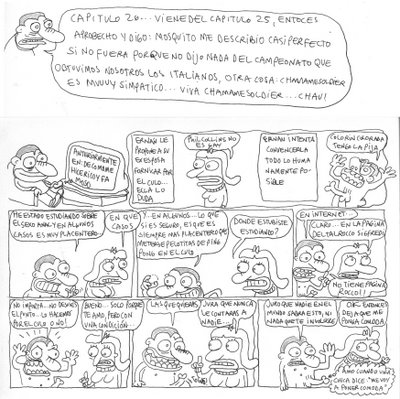 CAPITULO 20... VIENE DEL CAPITULO 25, ENTOCES
APROBECHO Y DIGO: MOSQUITO ME DESCRIBIO CASI PERFECTO
SI NO FUERA PORQUE NO DIJO NADA DEL CAMPEONATO QUE
OBTUVIMOS NOSOTROS LOS ITALIANOS, OTRA COSA: CHAMAMESOLDIER
ES MUUUY SIMPATICO... VIVA CHAMAMESOLDIER... CHAU!
ANTERIORMENTE
EN:
HICE RICO Y FA
MOSO
ERNAN LE
PROPONE A SU
EX ESPOSA
FORNICAR POR
EL CULO...
ELLA LO
DUDA
PHIL COLLINS NO
ES GAY
ERNAN INTENTA
CONVENCERLA
TODO LO HUMA
NAMENTE PO
SIBLE
COLORIN COLORADA
TENGA LA PIJA
ME ESTADO ESTUDIANDO SOBRE
EL SEXO ANAL Y EN ALGUNOS
CASOS ES MUY PLACENTERO
EN QUE
CASOS
Y... EN ALGUNOS... LO QUE
SI ES SEGURO, ES QUE ES
SIEMPRE MAS PLACENTERO QUE
METERSE PELOTITAS DE PING
PONG EN EL CULO
DONDE ESTUBISTE
ESTUDIANDO?
EN INTERNET...
CLARO... EN LA PAGINA
DEL TAL ROCO SIGFREDI
NO TIENE PAGINA
ROCCO!!
NO IMPORTA... NO DESVIES
EL PUNTO... LO HACEMOS
POR EL CULO O NO!
BUENO... SOLO PORQUE
TE AMO, PERO CON
UNA CONDICIÓN...
LAS QUE QUIERAS
JURA QUE NUNCA
LE CONTARAS A
NADIE...
JURO QUE NADIE EN EL
MUNDO SABRA ESTO, NI
NADA QUE TE INVOLUCRE
OK. ENTONCES
DEJA QUE ME
PONGA COMODA
AMO CUANDO UNA
CHICA DICE: "ME VOY
A PONER COMODA"